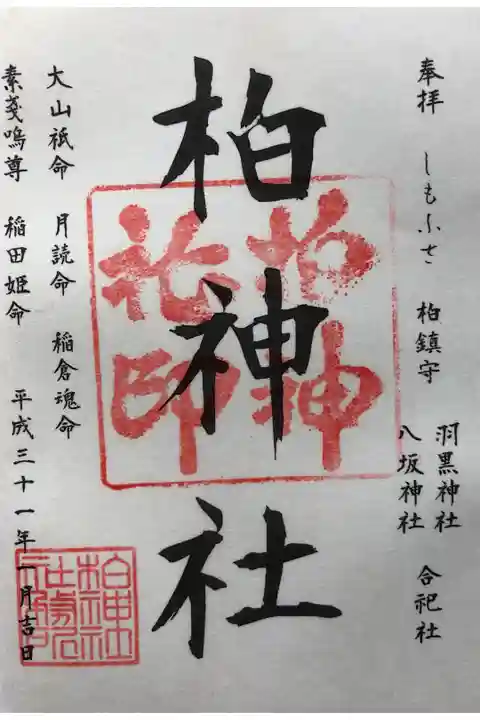 奉拝 しもふさ 柏鎮守
羽黒神社
八坂神社
合祀社
柏神社
柏神社印
大山祇命 月読命 稲倉魂命
素戔嗚尊 稲田姫命 平成三十一年一月吉日
柏神社